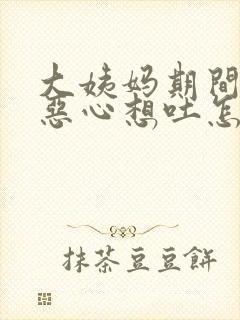 大姨妈期間
惡心想吐怎
抹茶豆豆餅